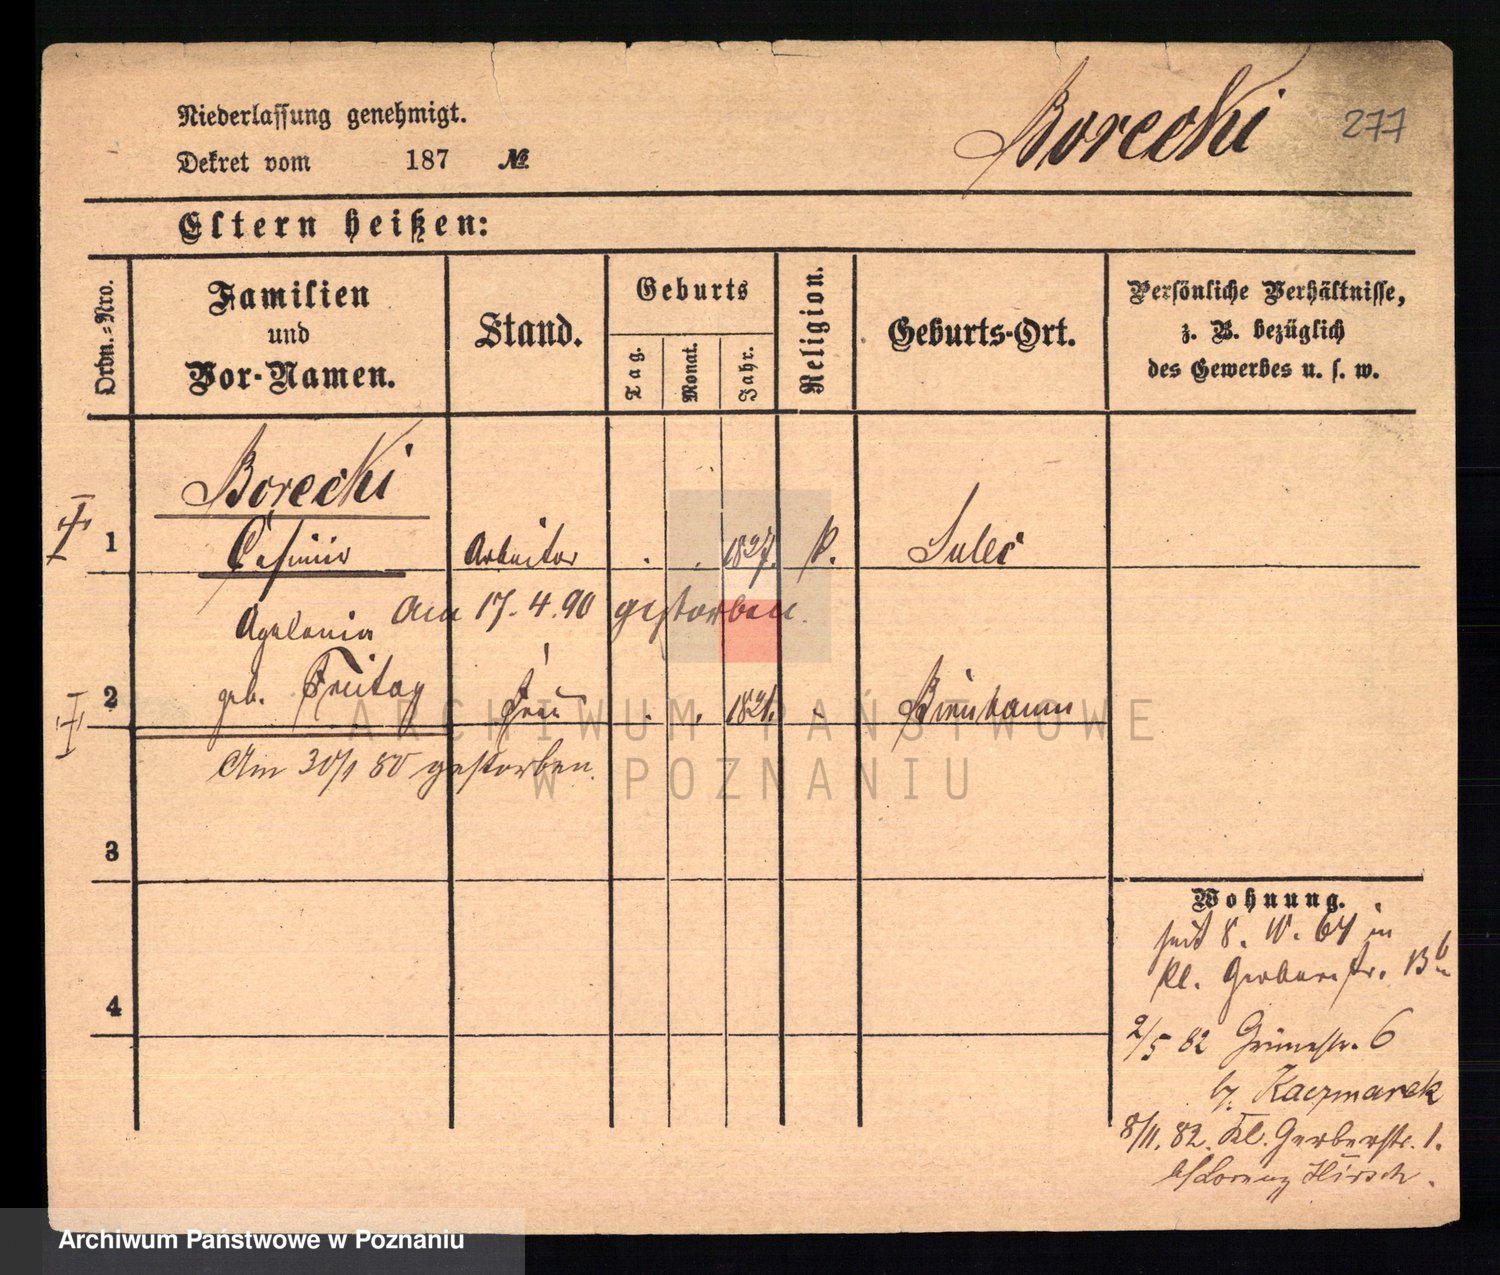 Niederlassung genehmigt.
Dekret vom 187 №
Borecki
277
Eltern heißen:
Ordn.=Nro.
Familien
und
Vor-Namen.
Stand.
Geburts
Tag.
Monat.
Jahr.
Religion.
Geburts-Ort.
Persönliche Verhältnisse,
z. B. bezüglich
des Gewerbes u. s. w.
Borecki
1 Casimir Arbeiter . . 1827.
Am 17.4.90 gestorben.
geb. Freitag
2 Frau . . Birnbaum
Am 30/1 80 gestorben.
3
4
Wohnung.
seit 8. IV. 64 in
Kl. Gerberstr. 13
2/5 82 Grünestr. 6
b. Kaczmarek
8/11. 82. Kl. Gerberstr. 1.
b/Lorenz Hirsch.
ARCHIWUM PAŃSTWOWE
W POZNANIU
Archiwum Państwowe w Poznaniu